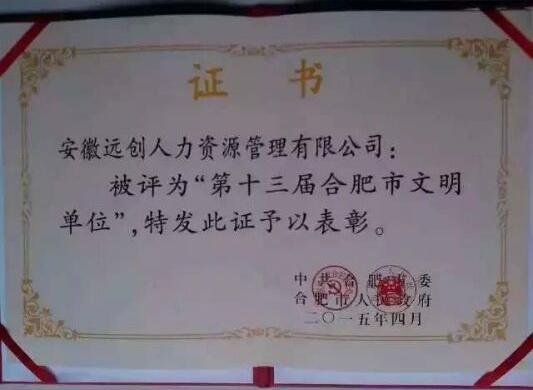 证书
安徽远创人力资源管理有限公司：
被评为“第十三届合肥市文明
单位”，特发此证予以表彰。
中共合肥市委
合肥市人民政府
二〇一五年四月